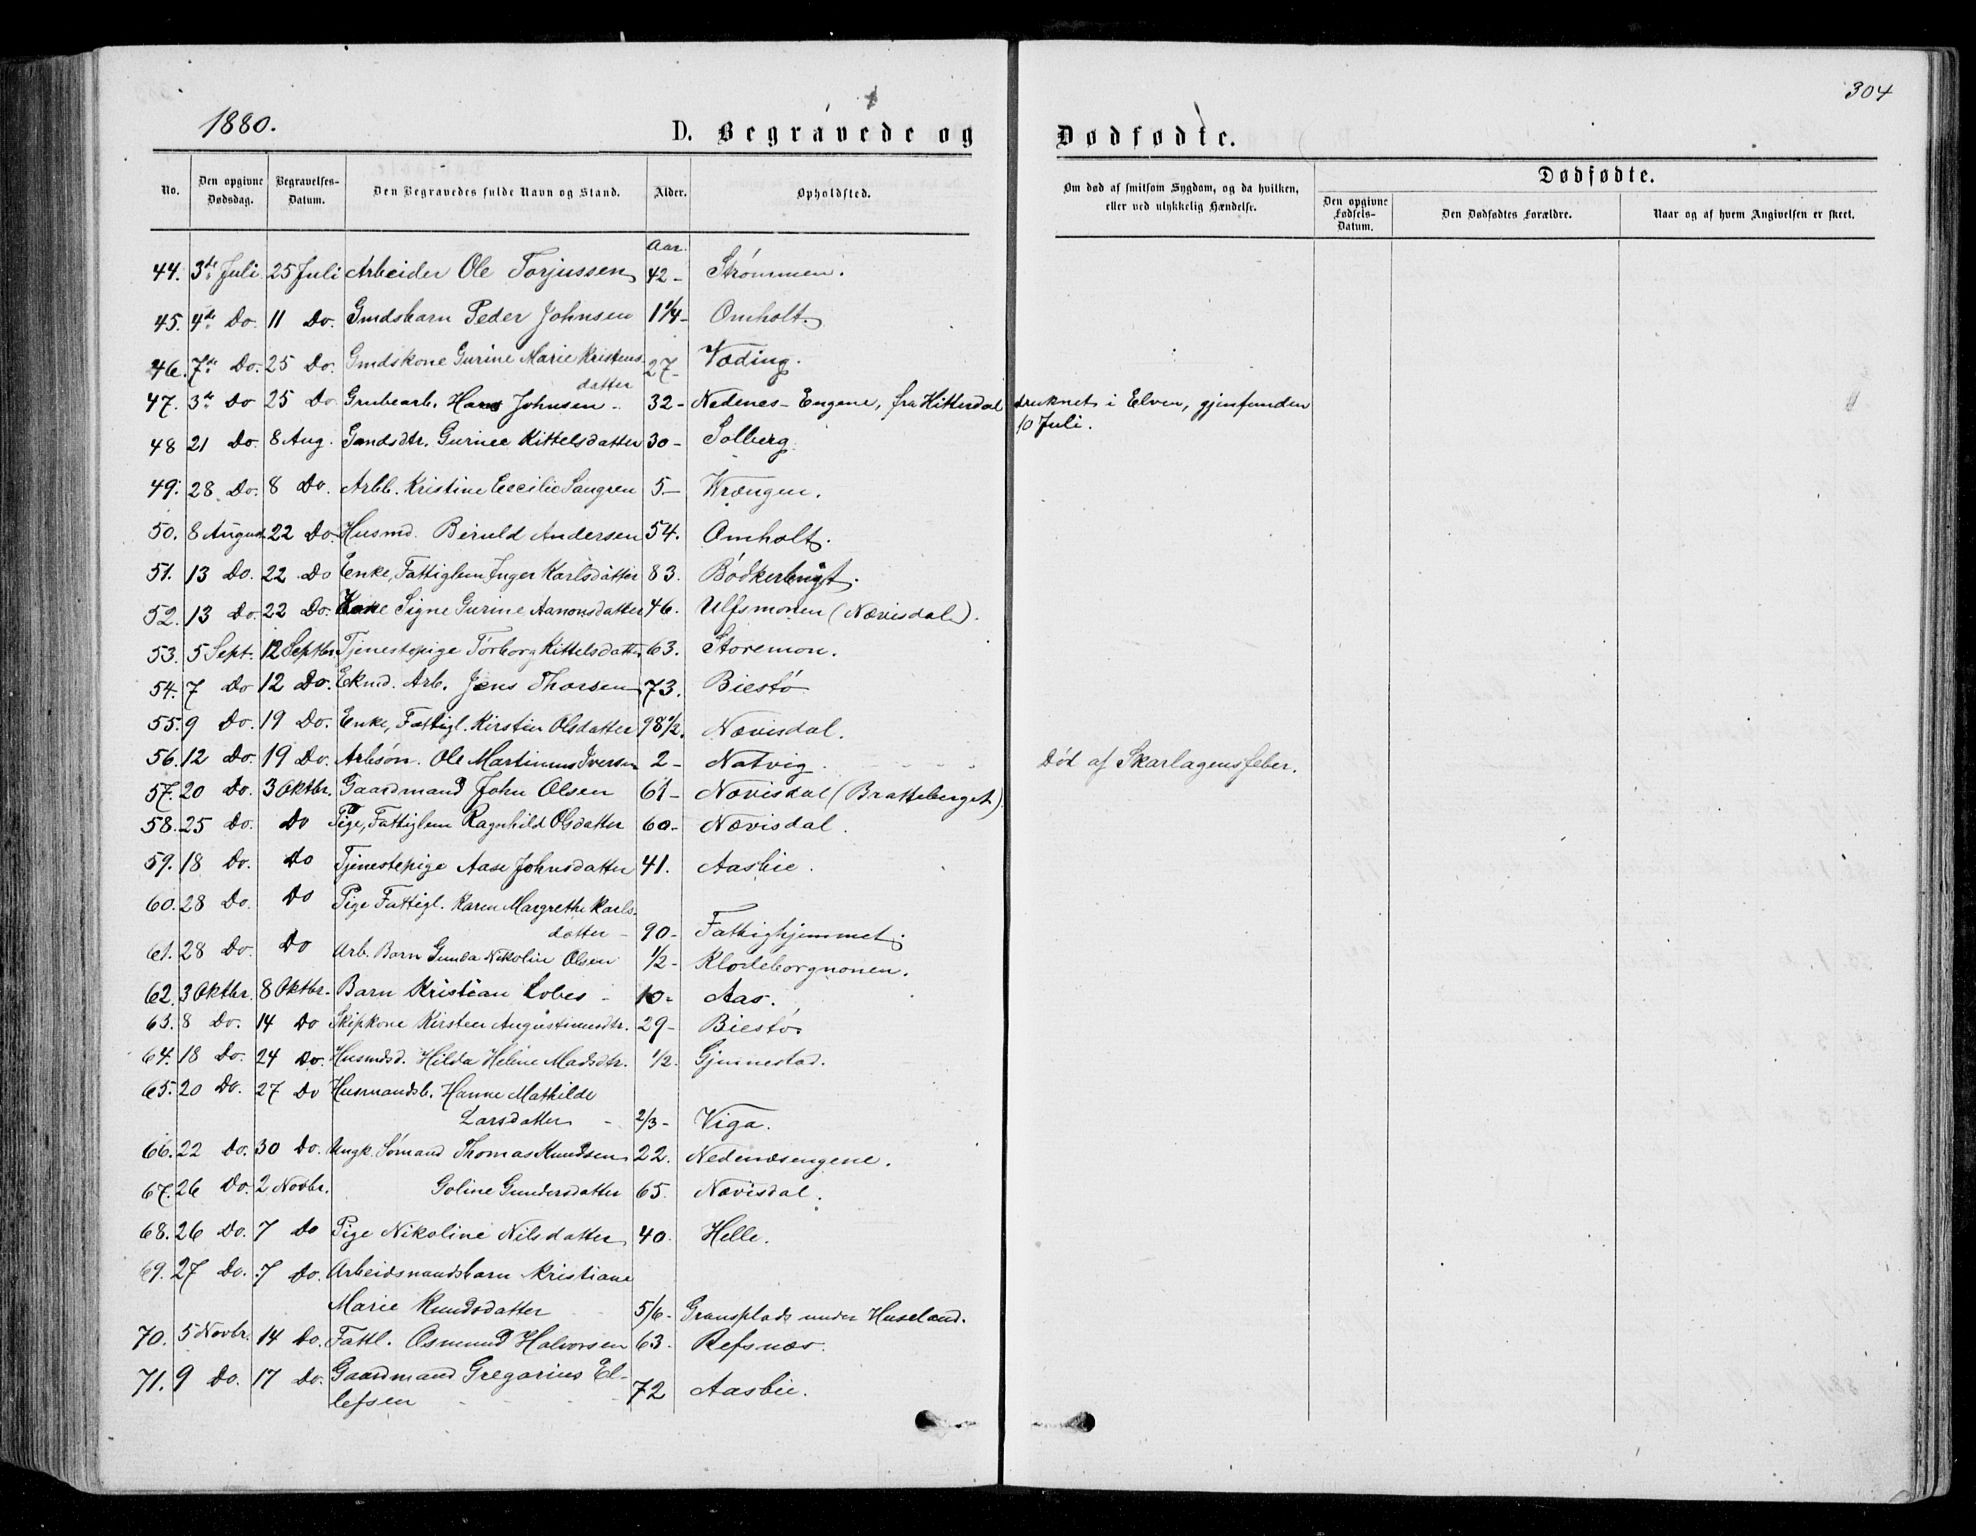 304
1880.
D. Begravede og Dødfødte.
No. Den opgivne Dødsdag. Begravelses-Datum. Den Begravedes fulde Navn og Stand. Alder. Opholdsted. Om død af smitsom Sygdom, og da hvilken, eller ved ulykkelig Hændelse. Dødfødte. Den opgivne Fødsels-Datum. Den Dødfødtes Forældre. Naar og af hvem Angivelsen er skeet.
Aar.
44. 3die Juli 25 Juli Arbeider Ole Torjussen 42 - Strømmen.
45. 4de Do. 11 Do. Gmdsbarn Peder Johnsen 1 1/4 - Omholt.
46. 7de Do. 25 Do. Gmdskone Gurine Marie Kristens
datter 27 - Væding.
47. 3die Do 25 Do Grubearb. Hans Johnsen - 32 - Nedenes-Engene, fra Hitterdal druknet i Elven, gjenfunden
10 Juli.
48 21 Do. 8 Aug. Gmdsdtr. Gurine Kittelsdatter 30 - Solberg.
49. 28 Do. 8 Do. Arbb. Kristine Cecilie Sangren 5 - Krængen.
50. 8 August 22 Do. Husmd. Beruld Andersen 54. Omholt.
51. 13 Do. 22 Do Enke, Fattiglem Inger Karlsdatter 83. Bødkerbugt.
52. 13 Do. 22 Do. Kone Signe Gurine Aanonsdatter 46. Ulfsmonen (Nævisdal).
53. 5 Sept. 12 Septbr. Tjenestepige Torborg Kittelsdatter 63. Storemon.
54. 7 Do 12 Do. Ekmd. Arb. Jens Thorsen 73. Biestø
55. 9 Do. 19 Do. Enke, Fattigl. Kirstin Olsdatter 98 1/2. Nævisdal.
56. 12 Do. 19 Do. Arbsøn. Ole Martinus Iversen 2 - Natvig. Død af Skarlagensfeber.
57. 20 Do. 3 Oktbr. Gaardmand John Olsen 61 - Nævisdal (Bratteberget)
58. 25 Do. Do Pige, Fattiglem Ragnhild Olsdatter 60 - Nævisdal.
59. 18 Do. Do Tjenestepige Aase Johnsdatter 41. Aasbie.
60. 28 Do. Do Pige Fattigl. Karen Margrethe Karls-
datter - 90 - Fattighjemmet.
61. 28 Do. Do Arb. Barn Gunda Nikoline Olsen 1/2 - Klodeborgmonen.
62. 3 Oktbr. 8 Oktbr. Barn Kristian Lobes - 10 - Aas.
63. 8 Do. 14 Do Skipkone Kirsten Augustinusdtr. 29 - Biestø
64. 18 Do. 24 Do. Husmdsd. Hilda Heline Madsdtr. 1/2. Gjennestad.
65. 20 Do. 27 Do Husmandsb. Hanne Mathilde
Larsdatter - 2/3 - Viga.
66. 22 Do. 30 Do. Ungk. Sømand Thomas Knudsen 22. Nedenæsengene.
67. 26 Do. 2 Novbr. Goline Gundersdatter 65. Nævisdal.
68. 26 Do. 7 Do Pige Nikoline Nilsdatter 40. Helle.
69. 27 Do. 7 Do. Arbeidsmandsbarn Kristiane
Marie Knudsdatter 5/6 - Gransplads under Huseland.
70. 5 Novbr. 14 Do. Fattl. Osmund Halvorsen 63. Refsnæs.
71. 9 Do. 17 Do. Gaardmand Gregorius El-
lefsen 72 Aasbie.